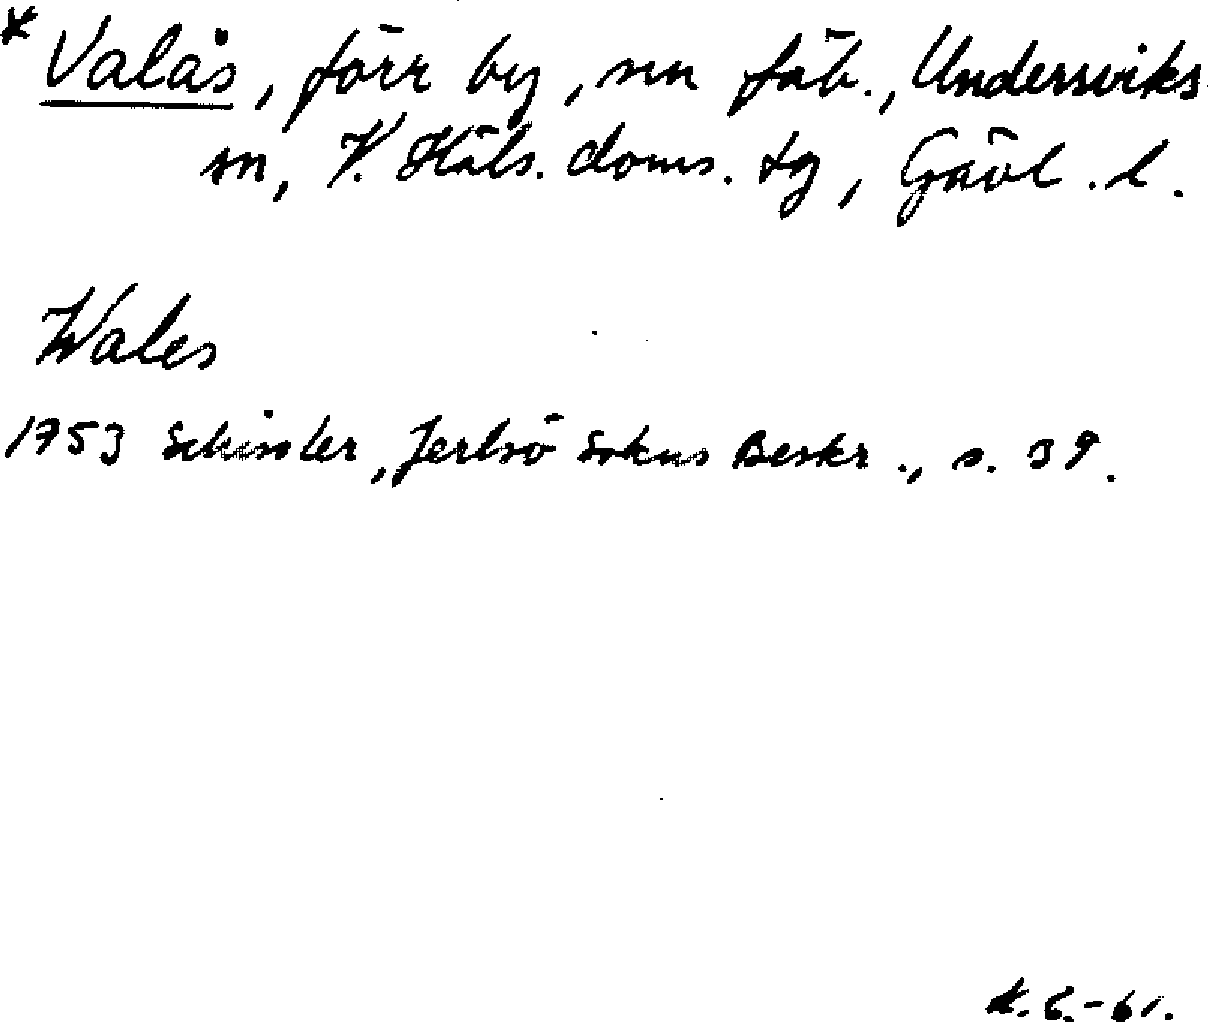 * Valås, förr by, sen fäb., Undersviks
sn, V. Häls. doms. tg, Gävl. l.
Wales
1753 Schissler, Jerlsö Sokns Beskr., s. 39.
-61.